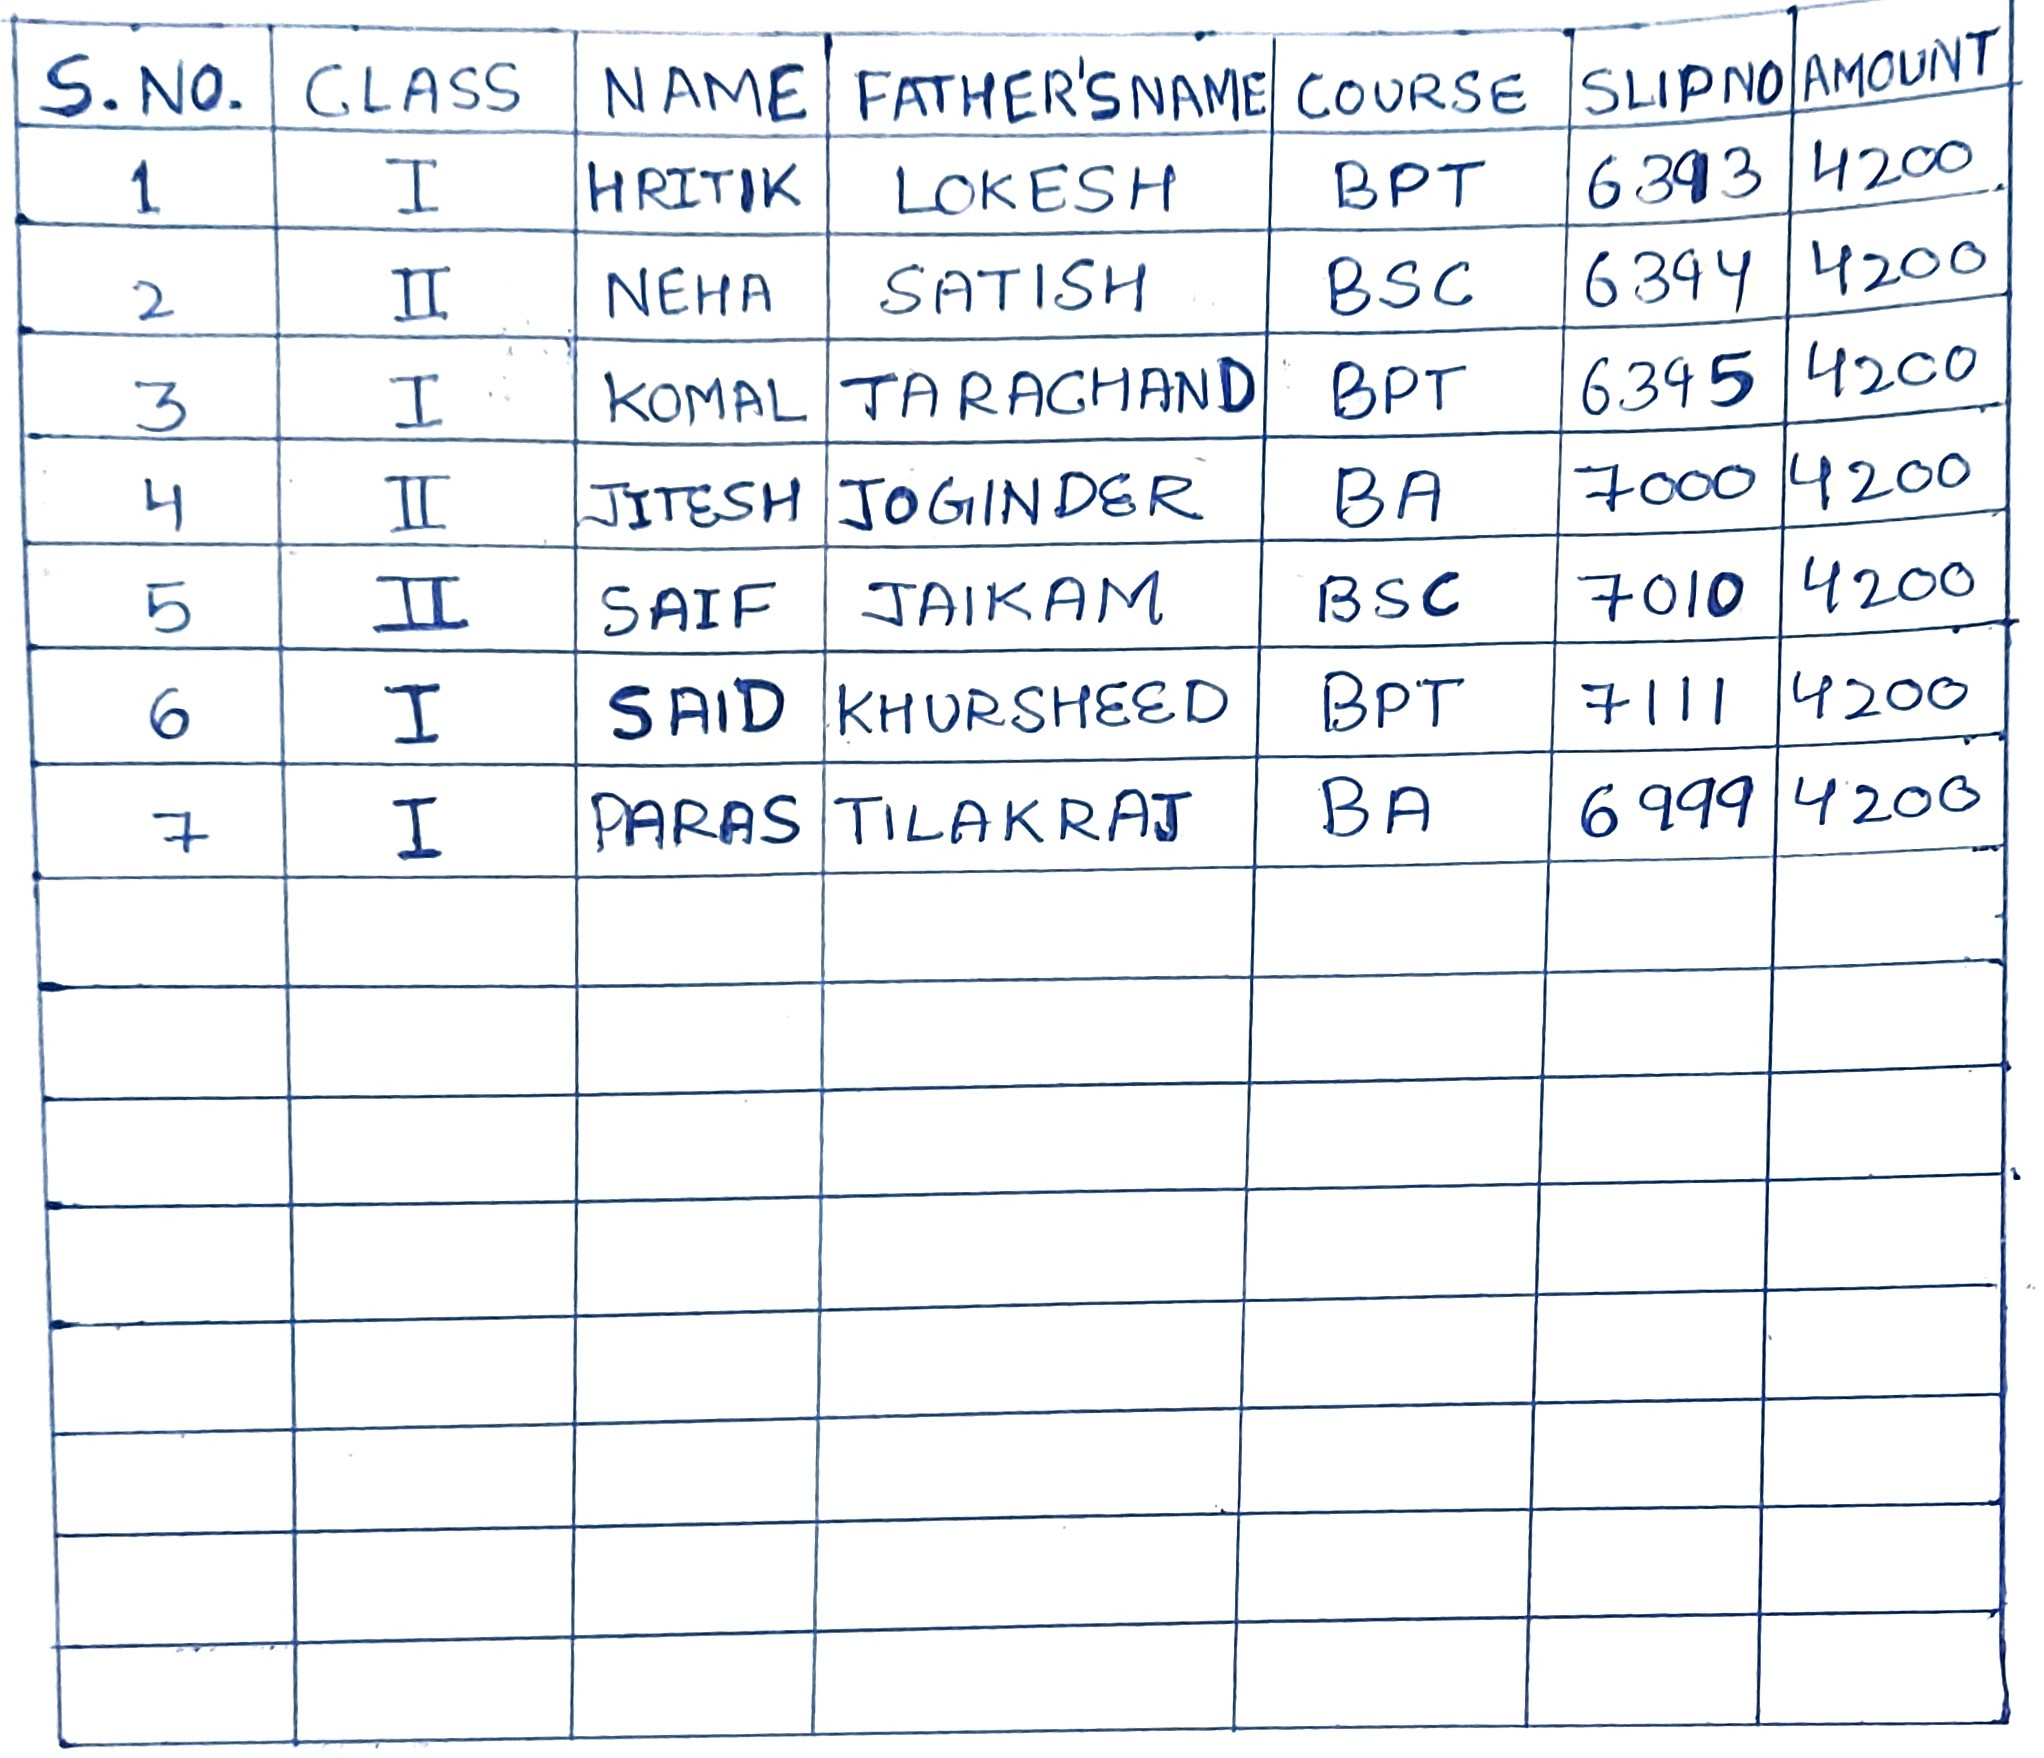 S. NO. CLASS NAME FATHER'S NAME COURSE SLIP NO AMOUNT
1 I HRITIK LOKESH BPT 6393 4200
2 II NEHA SATISH BSC 6394 4200
3 I KOMAL TARACHAND BPT 6395 4200
4 II JITESH JOGINDER BA 7000 4200
5 II SAIF JAIKAM BSC 7010 4200
6 I SAID KHURSHEED BPT 7111 4200
7 I PARAS TILAKRAJ BA 6999 4200